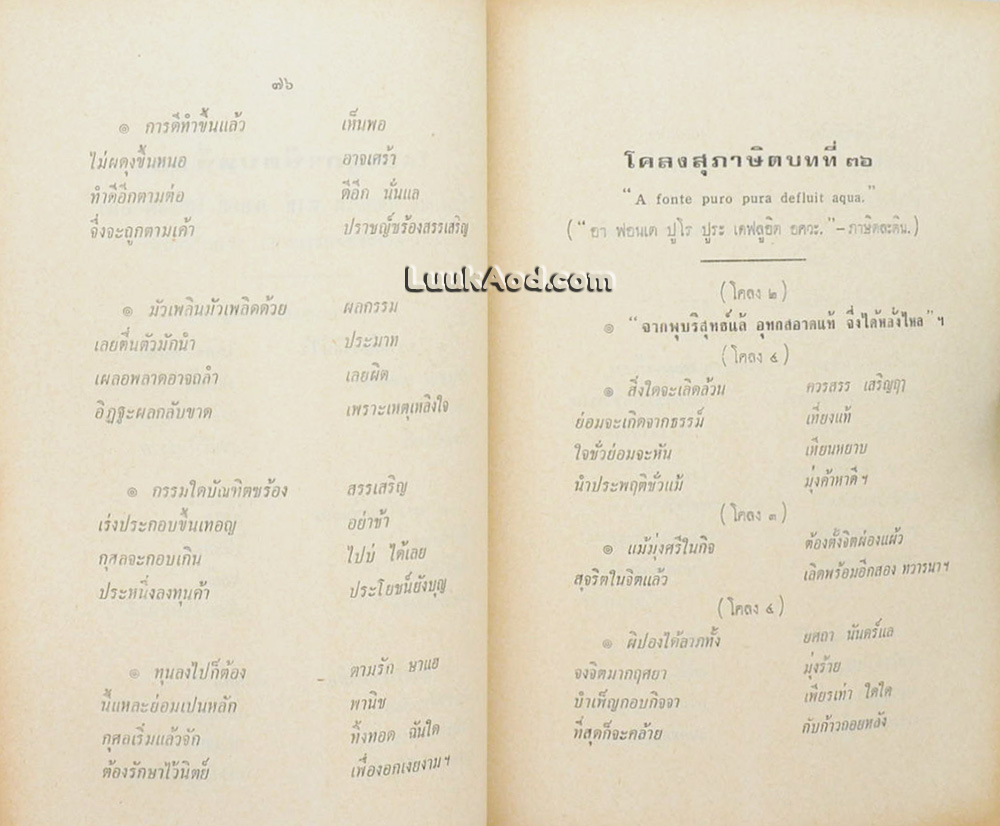 ๗๖
๏ การดีทำขึ้นแล้ว เห็นพอ
ไม่ผดุงขึ้นหนอ อาจเศร้า
ทำดีอีกตามต่อ ดีอีก นั่นแล
จึ่งจะถูกตามเค้า ปราชญ์ซร้องสรรเสริญ
๏ มัวเพลินมัวเพลิดด้วย ผลกรรม
เลยตื่นตัวมักนำ ประมาท
เผลอพลาดอาจถลำ เลยผิด
อิฏฐะผลกลับขาด เพราะเหตุเหลิงใจ
๏ กรรมใดบัณฑิตซร้อง สรรเสริญ
เร่งประกอบขึ้นเทอญ อย่าช้า
กุศลจะกอบเกิน ไปบ่ ได้เลย
ประหนึ่งลงทุนค้า ประโยชน์ยังบุญ
๏ ทุนลงไปก็ต้อง ตามรัก ษาแฮ
นี้แหละย่อมเปนหลัก พานิช
กุศลเริ่มแล้วจัก ทิ้งทอด ฉันใด
ต้องรักษาไว้นิตย์ เฟื่องอกเงยงามฯ
โคลงสุภาษิตบทที่ ๓๖
"A fonte puro pura defluit aqua."
("อา ฟอนเต ปูโร ปูระ เดฟลูอิต อควะ." – ภาษิตละติน.)
LuukAod.com
(โคลง ๒)
๏ "จากพุบริสุทธแล้ อุทกสอาดแท้ จึ่งได้หลั่งไหล" ฯ
(โคลง ๔)
๏ สิ่งใดจะเลิดล้วน ควรสรร เสริญฤๅ
ย่อมจะเกิดจากธรรม์ เที่ยงแท้
ใจชั่วย่อมจะหัน เหียนหยาบ
นำประพฤติชั่วแม้ มุ่งค้าหาดีฯ
(โคลง ๓)
๏ แม้มุ่งศรีในกิจ ต้องตั้งจิตผ่องแผ้ว
สุจริตในจิตแล้ว เลิดพร้อมอีกสอง ทวารนาฯ
(โคลง ๔)
๏ ผิปองได้ลาภทั้ง ยศถา นันดร์แล
จงจิตมากฤศยา มุ่งร้าย
บำเพ็ญกอบกิจจา เพียรเท่า ใดใด
ที่สุดก็จะคล้าย กับก้าวถอยหลัง